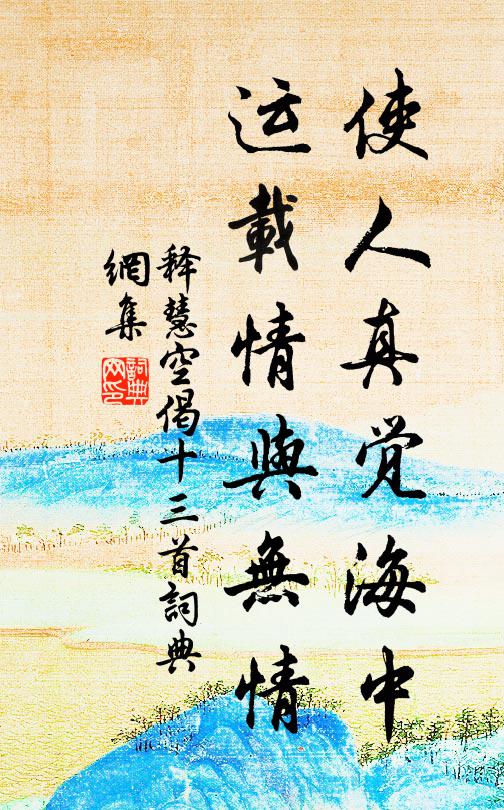 使人真觉海中
运載情與無情
释慧空偈十三首詞典
網集
詞典
网印